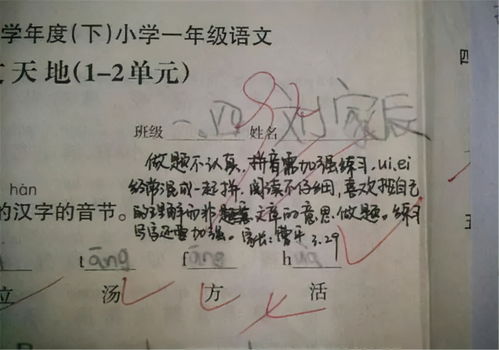 学年度(下)小学一年级语文
天地(1-2单元)
班级 一.四 姓名 刘家辰
做题不认真,拼音需加强练习,ui、ei
经常混成一起拼,阅读不仔细,喜欢按自己
hàn
的汉字的音节。
的理解而非题意文章的意思做题。练习
写字还需加强。家长: 3.29
tāng fāng h
立 汤 方 活
四
五